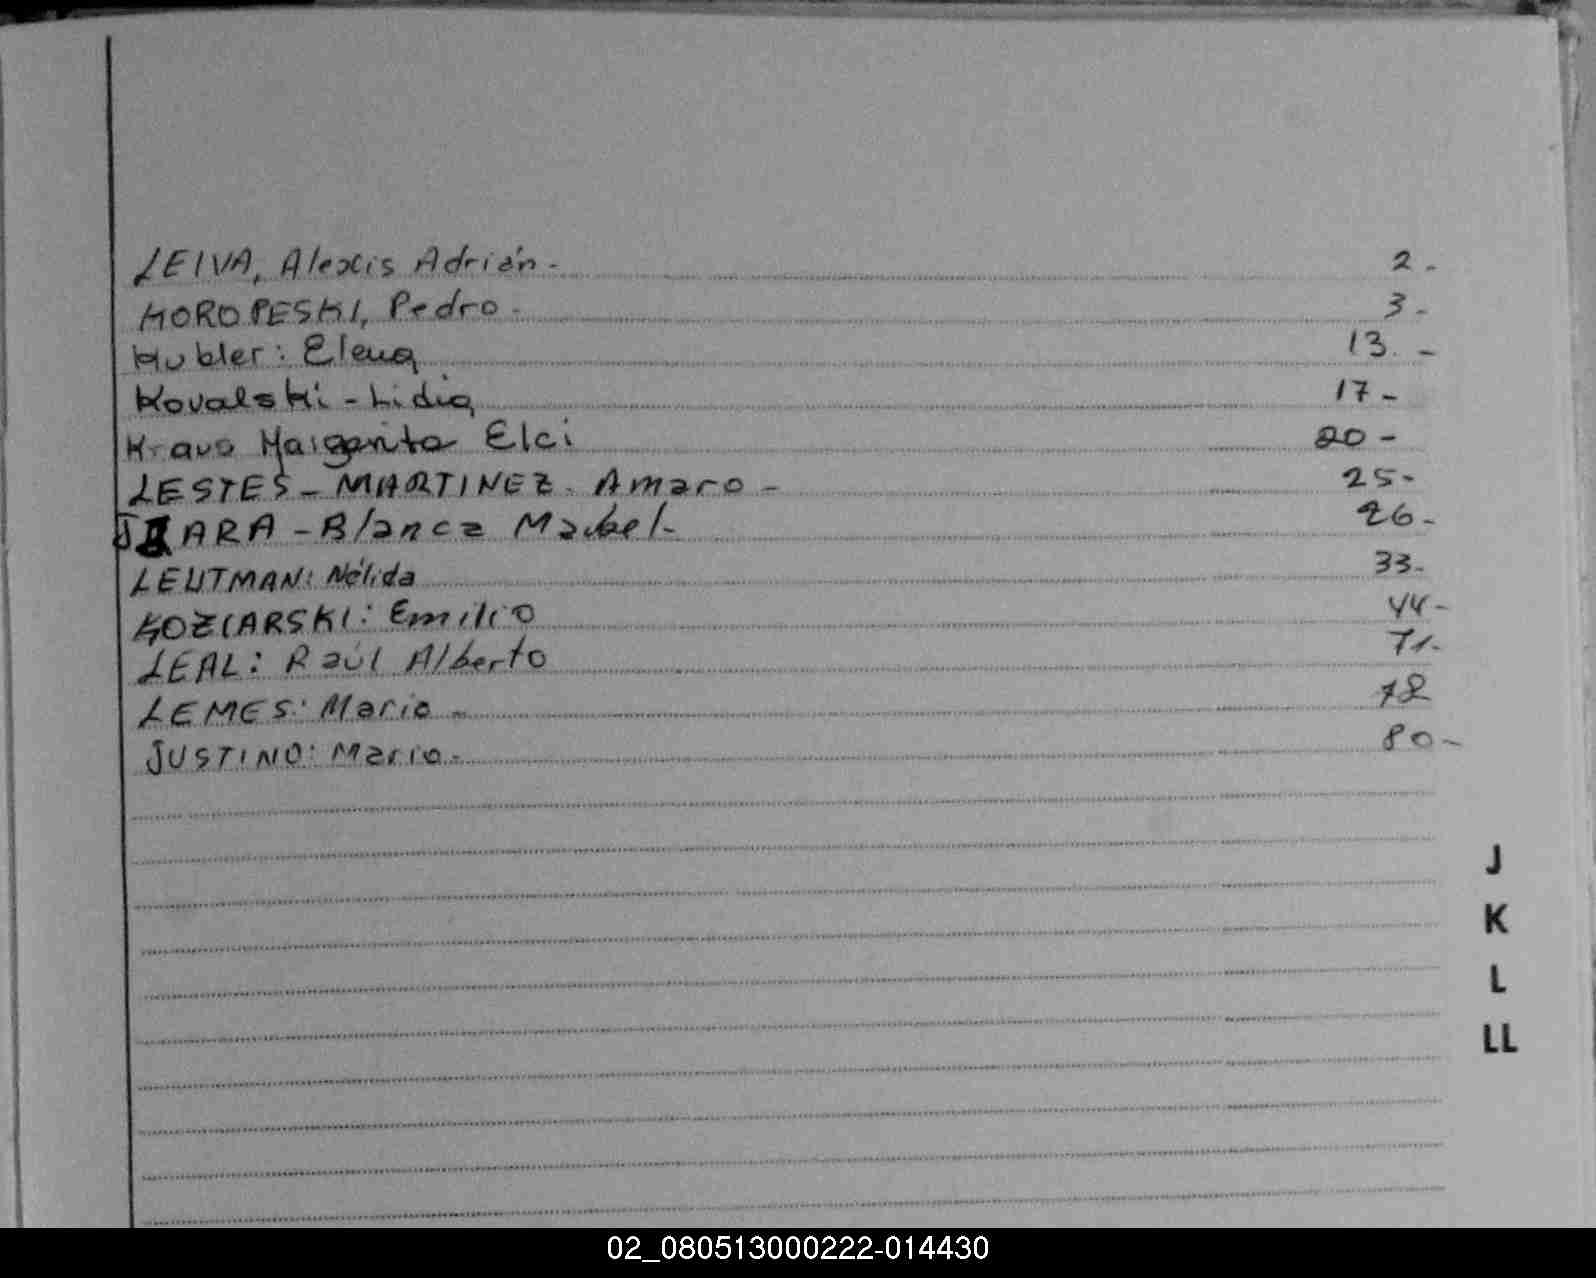 LEIVA, Alexis Adrián - 2 -
KOROPESKI, Pedro - 3 -
Kubler: Elena 13. -
Kovalski - Lidia 17 -
Kraus Margarita Elci 20 -
LESTES - MARTINEZ. Amaro - 25 -
JARA - Blanca Mabel - 26 -
LEUTMAN: Nélida 33 -
KOZIARSKI: Emilio 44 -
LEAL: Raúl Alberto 71 -
LEMES: Mario - 78
JUSTINO: Mario - 80 -
J
K
L
LL
02_080513000222-014430